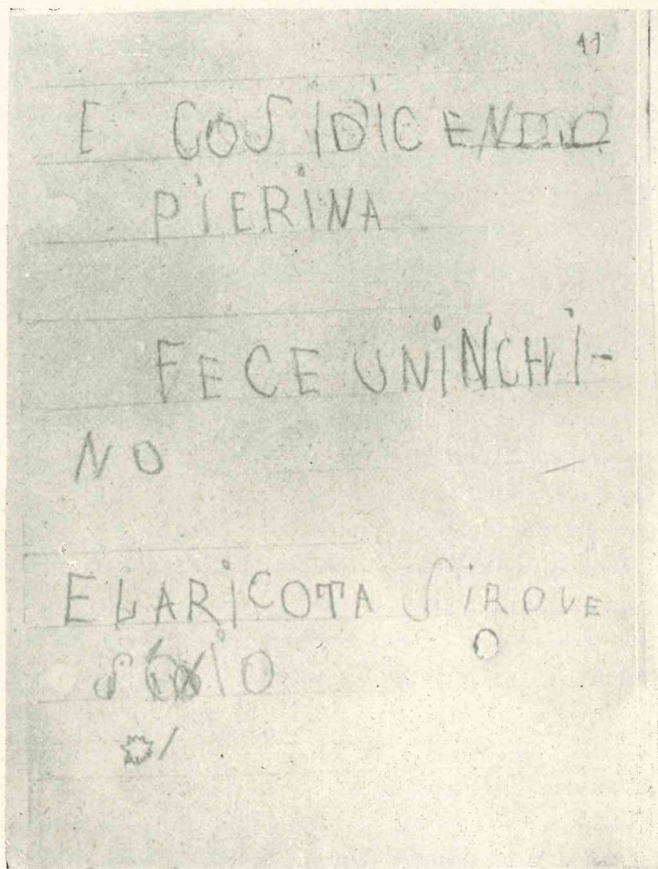 11
E COSIDICENDO
PIERINA
FECE UNINCHI-
NO
ELARICOTA SIROVE
SCIO